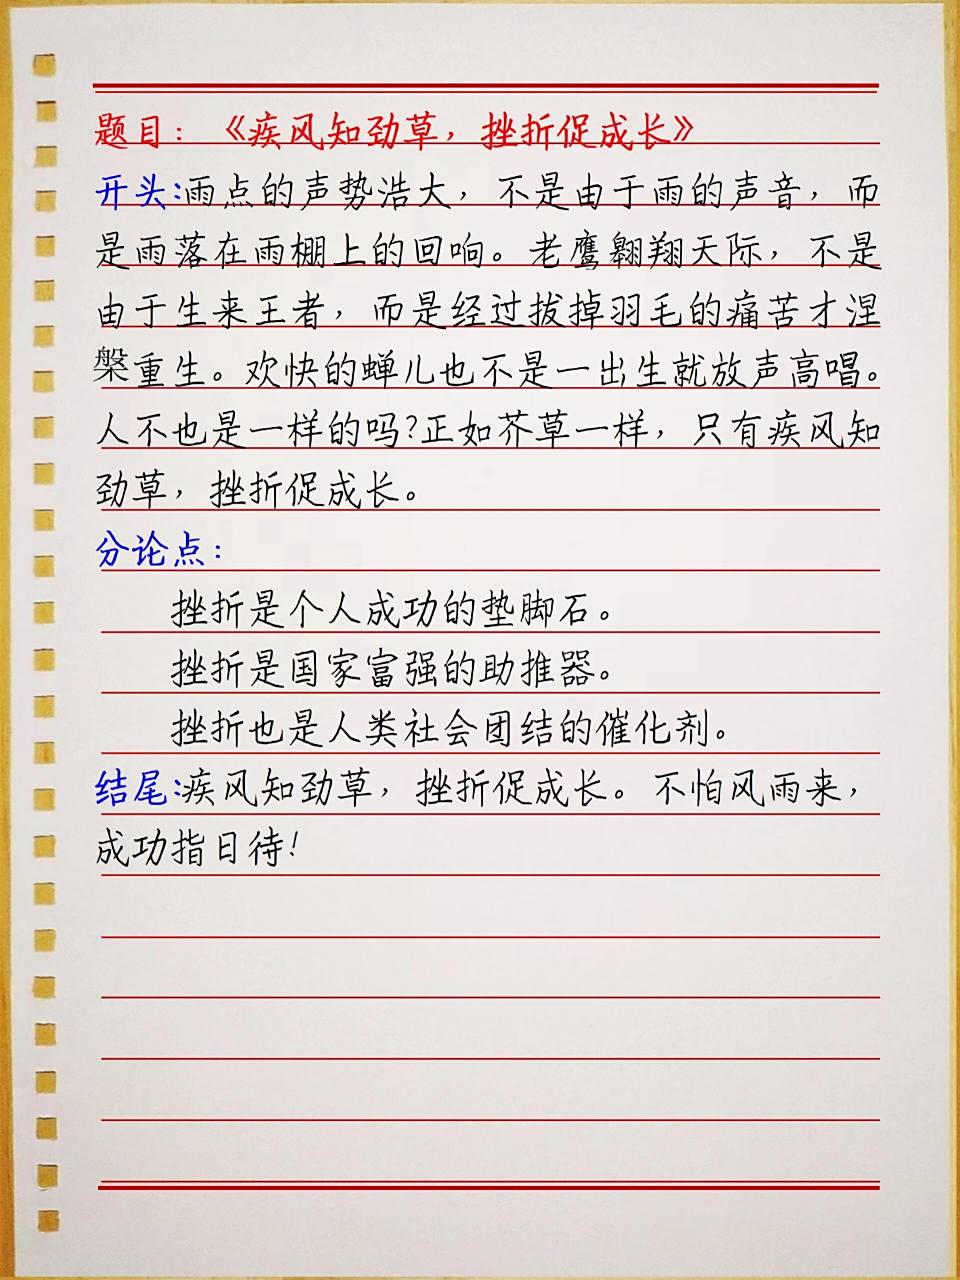 题目：《疾风知劲草，挫折促成长》
开头:雨点的声势浩大，不是由于雨的声音，而
是雨落在雨棚上的回响。老鹰翱翔天际，不是
由于生来王者，而是经过拔掉羽毛的痛苦才涅
槃重生。欢快的蝉儿也不是一出生就放声高唱。
人不也是一样的吗?正如芥草一样，只有疾风知
劲草，挫折促成长。
分论点：
挫折是个人成功的垫脚石。
挫折是国家富强的助推器。
挫折也是人类社会团结的催化剂。
结尾:疾风知劲草，挫折促成长。不怕风雨来，
成功指日待!